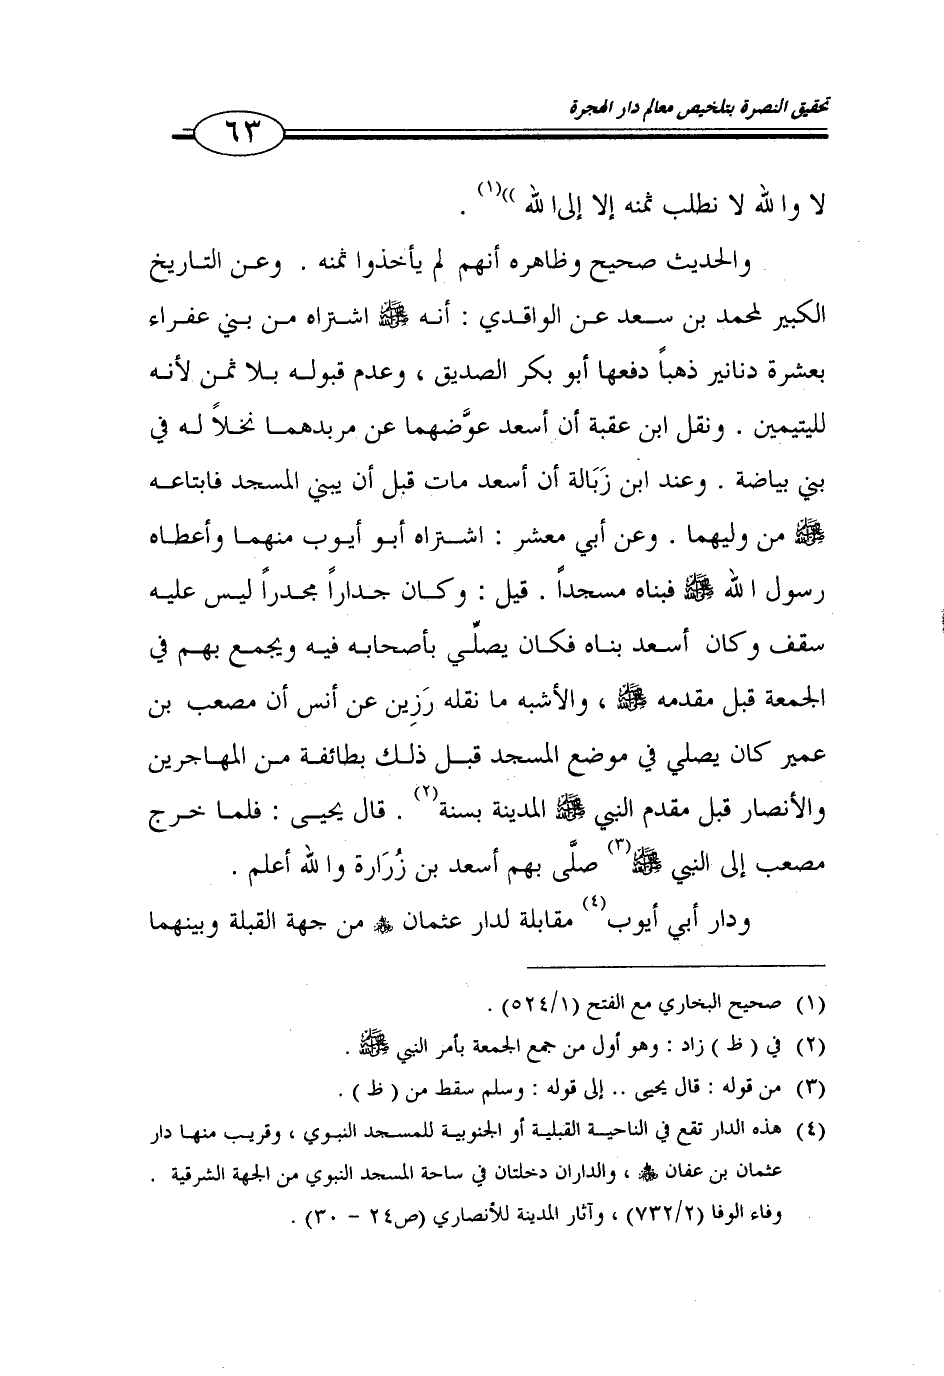 تحقيق النصرة بتلخيص معالم دار الهجرة
٦٣
لا والله لا نطلب ثمنه إلا إلى الله ))(١) .
والحديث صحيح وظاهره أنهم لم يأخذوا ثمنه . وعن التاريخ
الكبير لمحمد بن سعد عن الواقدي : أنه ﷺ اشتراه من بني عفراء
بعشرة دنانير ذهباً دفعها أبو بكر الصديق ، وعدم قبوله بلا ثمن لأنه
لليتيمين . ونقل ابن عقبة أن أسعد عوَّضهما عن مربدهما نخلاً له في
بني بياضة . وعند ابن زَبَالة أن أسعد مات قبل أن يبني المسجد فابتاعه
ﷺ من وليهما . وعن أبي معشر : اشتراه أبو أيوب منهما وأعطاه
رسول الله ﷺ فبناه مسجداً . قيل : وكان جداراً مجدراً ليس عليه
سقف وكان أسعد بناه فكان يصلّي بأصحابه فيه ويجمع بهم في
الجمعة قبل مقدمه ﷺ ، والأشبه ما نقله رَزِين عن أنس أن مصعب بن
عمير كان يصلي في موضع المسجد قبل ذلك بطائفة من المهاجرين
والأنصار قبل مقدم النبي ﷺ المدينة بسنة(٢) . قال يحيى : فلما خرج
مصعب إلى النبي ﷺ(٣) صلَّى بهم أسعد بن زُرَارة والله أعلم .
ودار أبي أيوب(٤) مقابلة لدار عثمان ﵁ من جهة القبلة وبينهما
(١) صحيح البخاري مع الفتح (٥٢٤/١) .
(٢) في ( ظ ) زاد : وهو أول من جمع الجمعة بأمر النبي ﷺ .
(٣) من قوله : قال يحيى .. إلى قوله : وسلم سقط من ( ظ ) .
(٤) هذه الدار تقع في الناحية القبلية أو الجنوبية للمسجد النبوي ، وقريب منها دار
عثمان بن عفان ﵁ ، والداران دخلتان في ساحة المسجد النبوي من الجهة الشرقية .
وفاء الوفا (٧٣٢/٢) ، وآثار المدينة للأنصاري (ص٢٤ - ٣٠) .